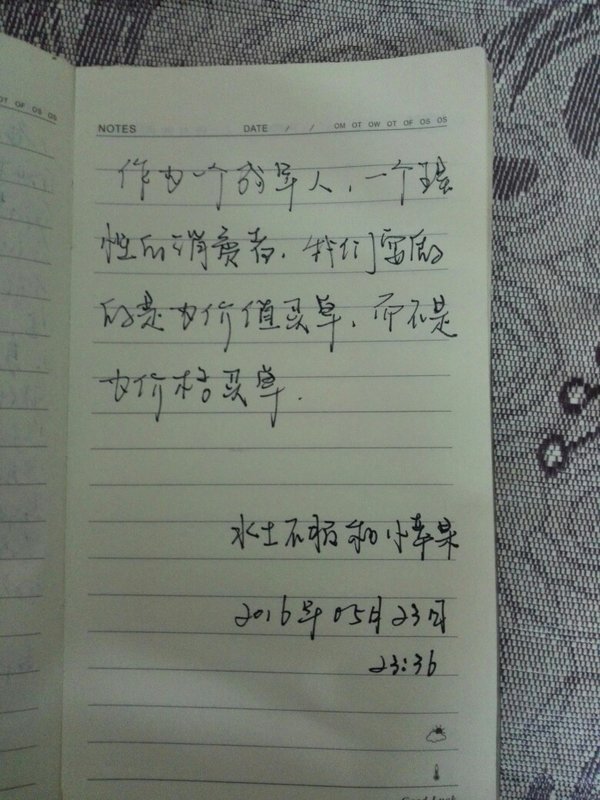 NOTES DATE / / OM OT OW OT OF OS OS
作为一个成年人,一个理
性的消费者,我们要做
的是为价值买单,而不是
为价格买单.
水土不服和小苹果
2016年05月23日
23:36